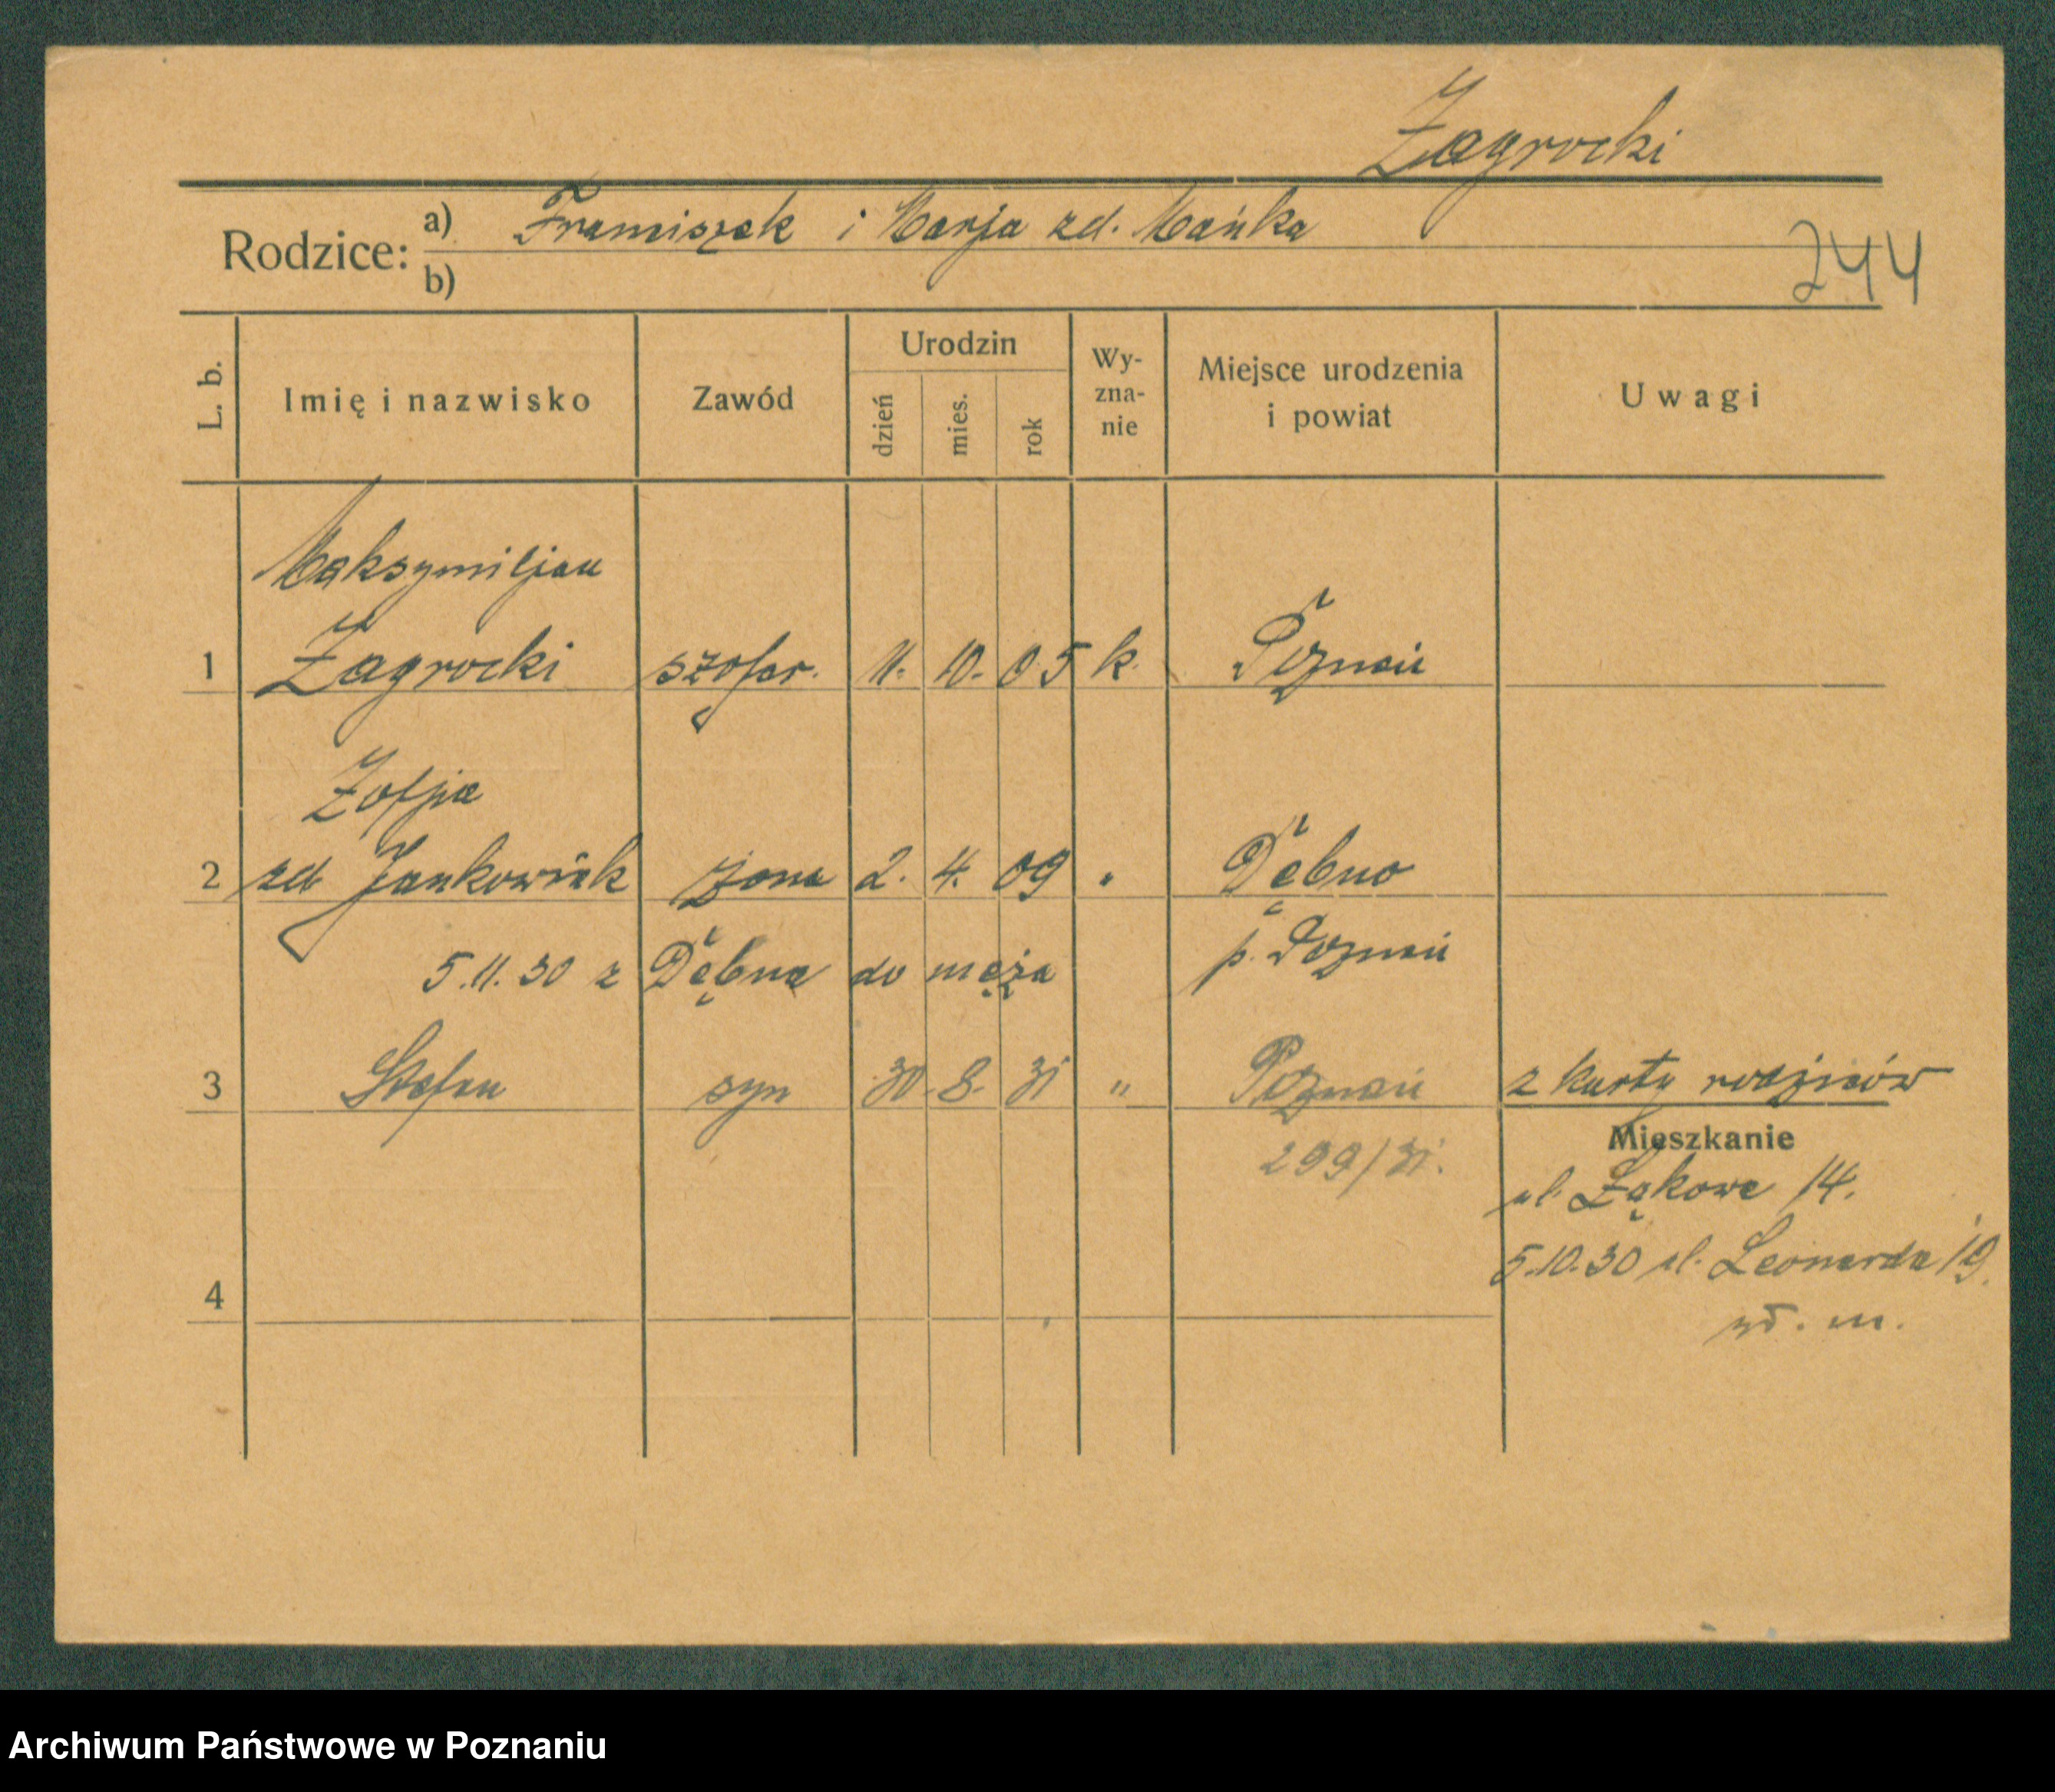 Zagrocki
Rodzice: a) Franciszek i Marja zd. Mańka
b)
244
L. b. Imię i nazwisko Zawód Urodzin dzień mies. rok Wy-zna-nie Miejsce urodzenia i powiat Uwagi
Maksymiljan
1 Zagrocki szofer. 11. 10. 05 k. Poznań
Zofja
2 zd Jankowiak żona 2. 4. 09 " Dębno
p. Poznań
5.11.30 z Dębna do męża
3 Stefan syn 30. 8. 31 " Poznań z karty rodziców
299/31.
Mieszkanie
ul. Łąkowa 14.
5.10.30 ul. Leonarda 19.
4
m.
Archiwum Państwowe w Poznaniu